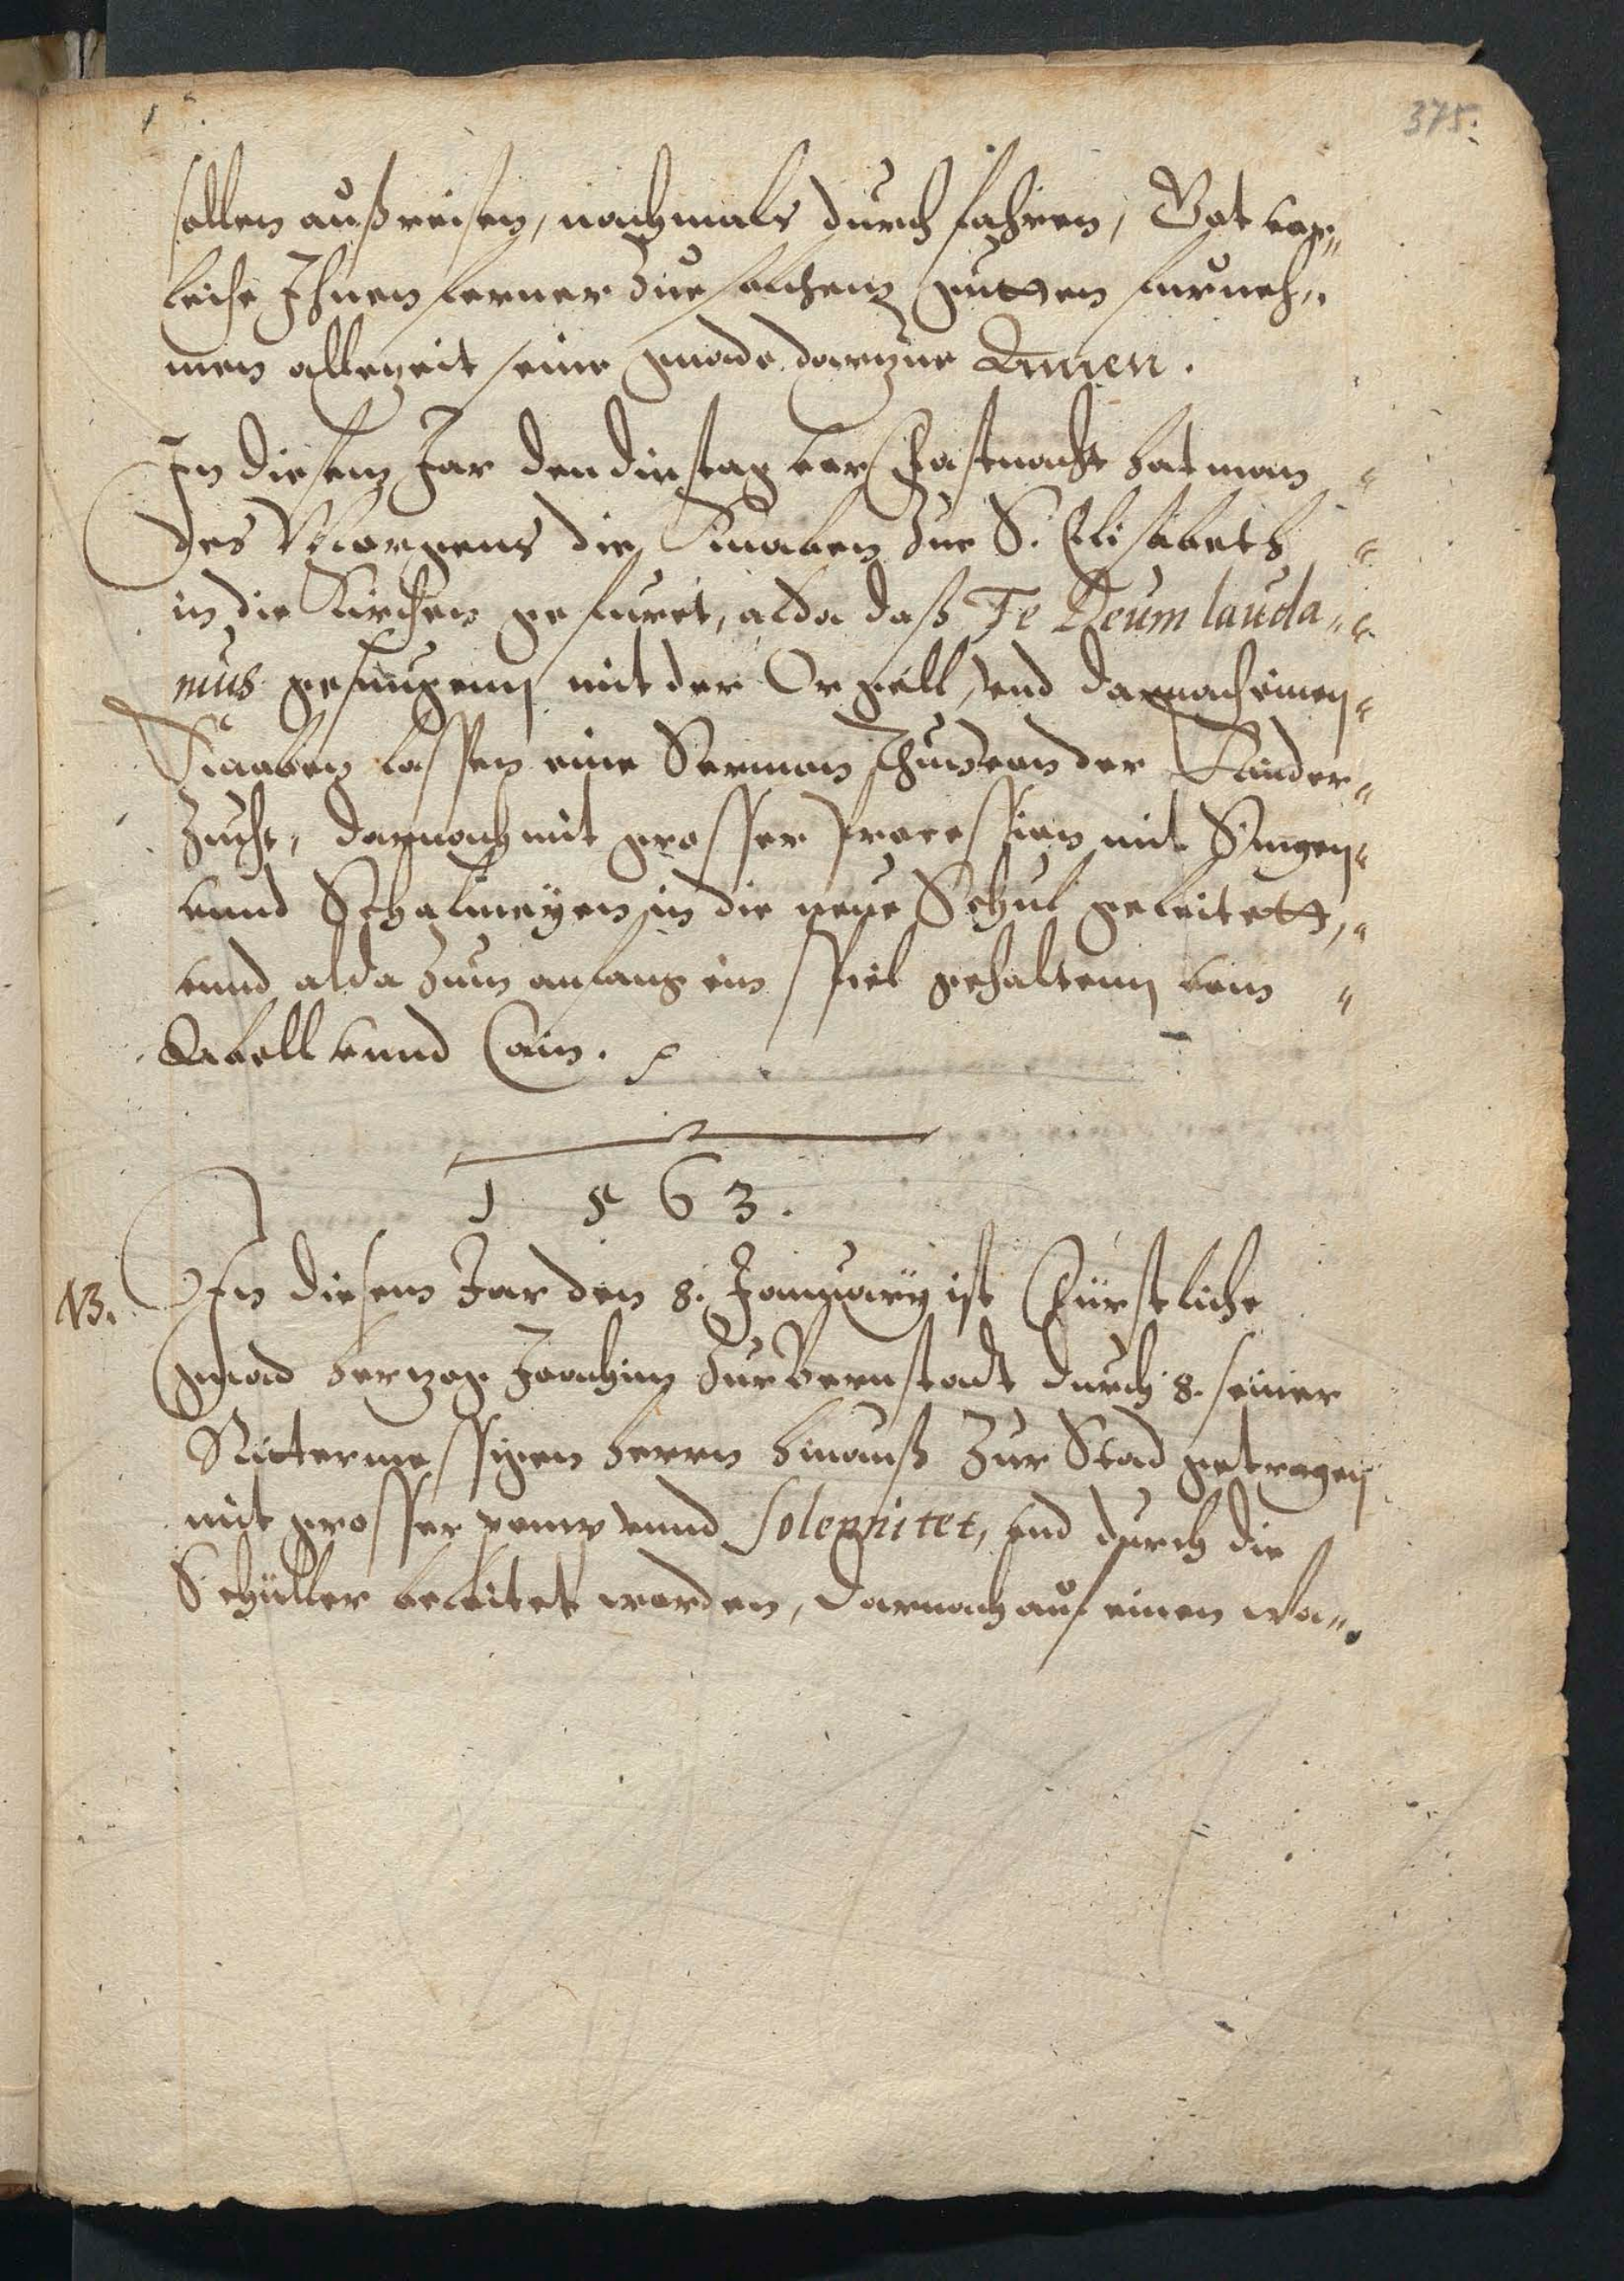 375.
sollen außreisen, nachmals durch fahren, Got vor„
leihe Ihnen ferner zue solchem gutten furneh„
men allezeit seine gnade darzue Amen.
In diesem Jar den dinstag vor Fastnacht hat man "
des Morgens die Knaben zue S. Elisabeth "
in die Kirchen gefuret, alda daß Te Deum lauda„ "
mus gesungenn mit der Orgell, vnd darnach einen "
Knaben lassen eine Sermon thun von der Kinder "
Zucht, darnach mit grosser Procession mit Singen "
vnnd Schalmeyen in die neue Schul geleitett, "
vnnd alda zum anfang ein spiel gehaltenn vom "
Abell vnnd Cain.
1563.
NB. In diesem Jar den 8. January ist Fürstliche
gnad hertzog Joachim zur Bernstadt durch 8. seiner
Rittermessigen herrn hinauß zur Stad getragen
mit grosser pomp vnnd solepnitet, vnd durch die
Schüller beleitet worden, darnach auf einen wa„